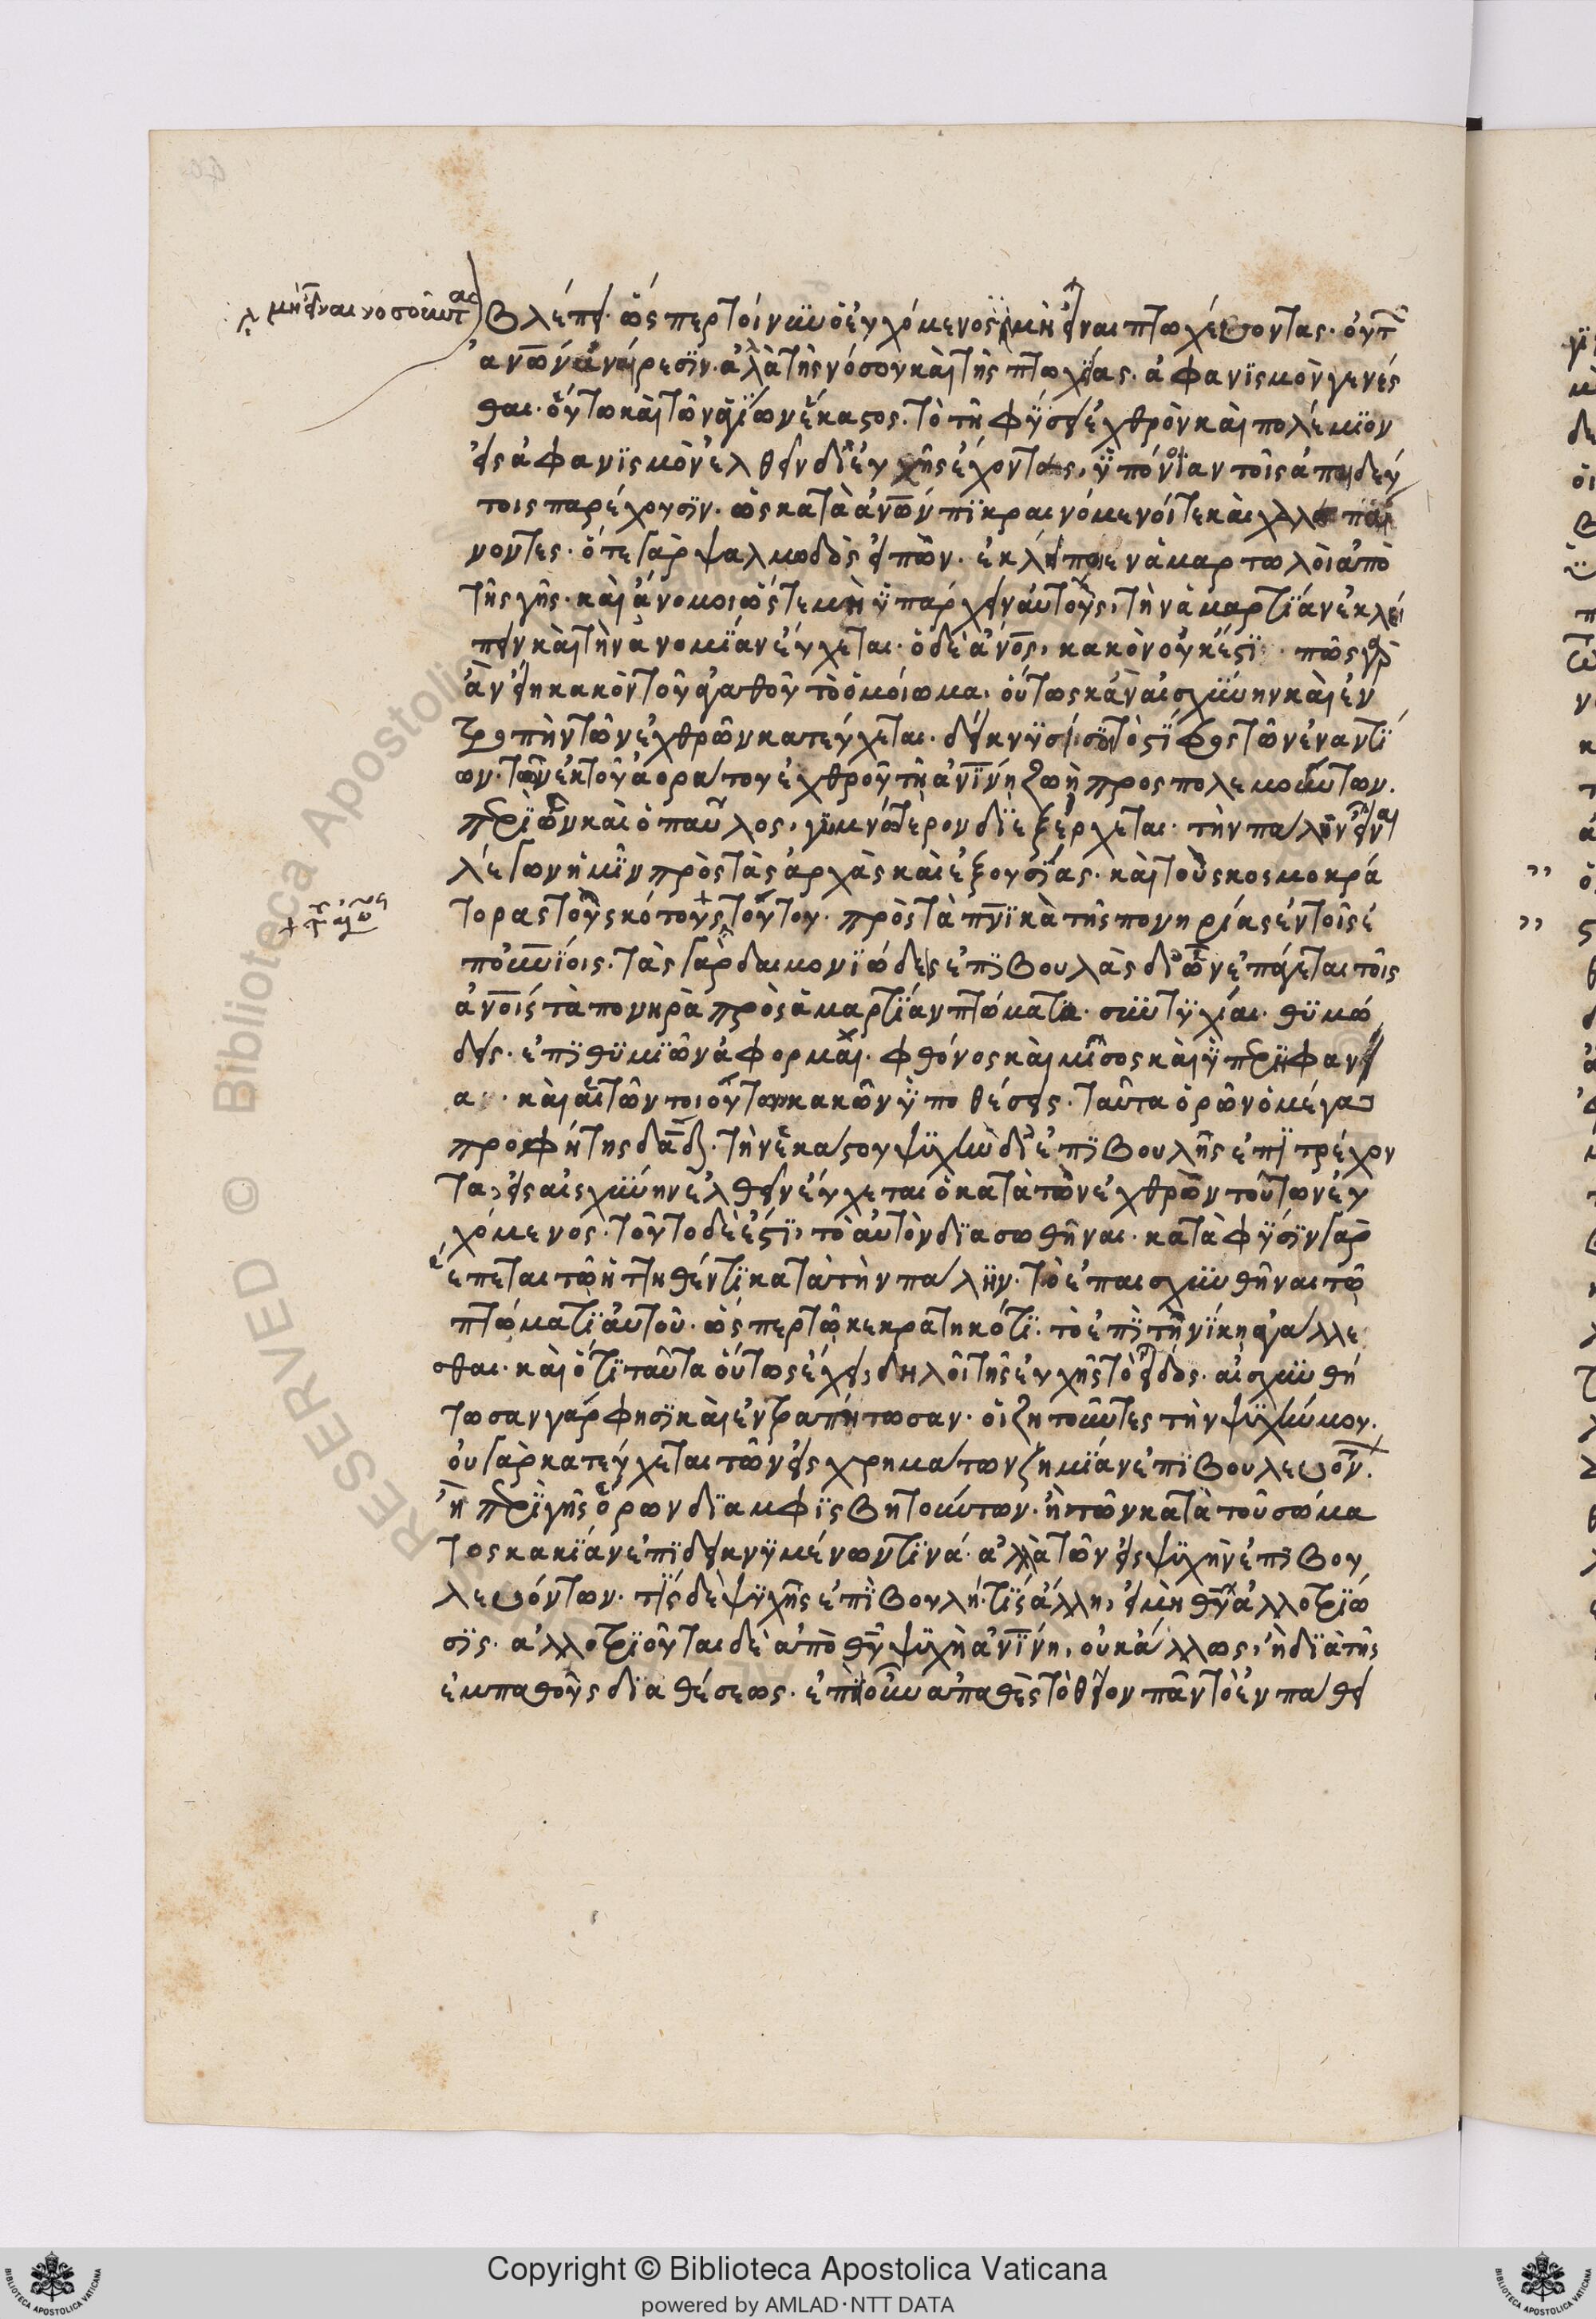 μὴ εἶναι νοσοῦντας
βλέπει· ὥσπερ τοίνυν ὁ εὐχόμενος ἢ μὴ εἶναι πτωχέυοντας· οὐ τ
ἀνῶν ἀναίρεσϊν· ἀλλὰ τῆς νόσου καὶ τῆς πτωχίας· ἀφανϊσμὸν γενές
θαι· οὕτω καὶ τῶν ἁγίων ἕκαστος. τὸ τῆ φύσει ἐχθρὸν καὶ πολέμϊον
εἰς ἀφανϊσμὸν ἐλθεῖν δϊ' ἐυχῆς ἔχοντες, ὑπόνοιαν τοῖς ἀπαιδεύ
τοις παρέχουσϊν. ὡς κατὰ ἀνῶν πϊκραινόμενοί τε καὶ χαλεπαί
νοντες· ὅτε γὰρ ψαλμωδὸς εἰπὼν· ἐκλείποιεν ἁμαρτωλοὶ ἀπὸ
τῆς γῆς· καὶ ἄνομοι ὥστε μὴ ὑπάρχειν αὐτοὺς, τὴν ἁμαρτϊάν ἐκλεί
πειν καὶ τὴν ἀνομϊάν εὔχεται· ὁ δὲ ἄνος, κακὸν οὐκ έστϊ · πῶς γὰρ
ἂν εἴη κακὸν τοῦ ἀγαθοῦ τὸ ὁμόιωμα· ὅυτως κἂν αἰσχύνην καὶ ἐν
τροπὴν τῶν ἐχθρῶν κατεύχεται· δείκνυσί σοι τὸ στίφος τῶν ἐναντϊ
ων· τῶν ἐκ τοῦ ἀοράτου ἐχθροῦ τῆ ἀνίνη ζωῆ προσπολεμούντων.
περὶ ὧν καὶ ὁ παῦλος, γυμνότερον διεξέρχεται· τὴν πάλην εἶναι
λέγων ἡμῖν πρὸς τὰς ἀρχὰς καὶ ἐξουσϊας· καὶ τοὺς κοσμοκρά
τορας τοῦ σκότους τούτου· πρὸς τὰ πνϊκὰ τῆς πονηρίας ἐν τοῖς ἐ
+ τ αἰῶνος
πουνϊοις. τὰς γὰρ δαιμονϊώδεις ἐπϊβουλὰς δϊ' ὧν ἐπάγεται τοῖς
ἀνοις τὰ πονηρὰ πρὸς ἁμαρτϊάν πτώματα· συντυχίαι· θυμώ
δεις· ἐπϊθυμϊῶν ἀφορμαὶ· φθόνος καὶ μῖσος καὶ ὑπερηφανεί
α · καὶ αἱ τῶν τοιούτων κακῶν ὑποθέσεις· ταῦτα ὁρῶν ὁ μέγας
προφήτης δαδ. τὴν ἑκάστου ψυχὴν δϊ' ἐπϊβουλῆς ἐπϊτρέχον
τα, εἰς αἰσχύνην ἐλθεῖν εὔχεται ὁ κατὰ τῶν ἐχθρῶν τούτων εὐ
χόμενος· τοῦτο δὲ ἐστϊ, τὸ αὐτὸν δϊασωθῆναι· κατὰ φύσϊν γὰρ
ἕπεται τῶ ἡττηθέντϊ κατὰ τὴν πάλην· τὸ ἐπαισχυνθῆναι τῶ
πτώματϊ αὐτοῦ· ὥσπερ τῶ κεκρατηκότϊ· τὸ ἐπϊ τῆ νίκη ἀγάλλε
σθαι· καὶ ὅτϊ ταῦτα ὅυτως έχει, δηλοῖ τῆς ἐυχῆς τὸ εἶδος· αἰσχυνθή
τωσαν γάρ φησϊ καὶ ἐντραπήτωσαν· ὁι ζητοῦντες τὴν ψυχήν μου.
ὀυ γὰρ κατεύχεται τῶν εἰς χρημάτων ζημϊάν ἐπϊβουλευόν.
ἢ περὶ γῆς ὅρων δϊαμφϊσβητούντων· ἢ τῶν κατὰ τοῦ σώμα
τος κακϊάν ἐπϊδεικνυμένων τϊνά· ἀλλὰ τῶν εἰς ψυχὴν ἐπϊβου
λευόντων· τίς δὲ ψυχῆς ἐπϊβουλή· τϊς ἄλλη, εἰ μὴ θυ ἀλλοτρίω
σϊς· ἀλλοτρϊοῦται δὲ ἀπὸ θυ ψυχὴ ἀνίνη, οὐκ άλλως, ἢ δϊὰ τῆς
ἐμπαθοῦς δϊαθέσεως· ἐπεὶ οὖν ἀπαθὲς τὸ θεῖον πᾶν τὸ ἐν πάθει